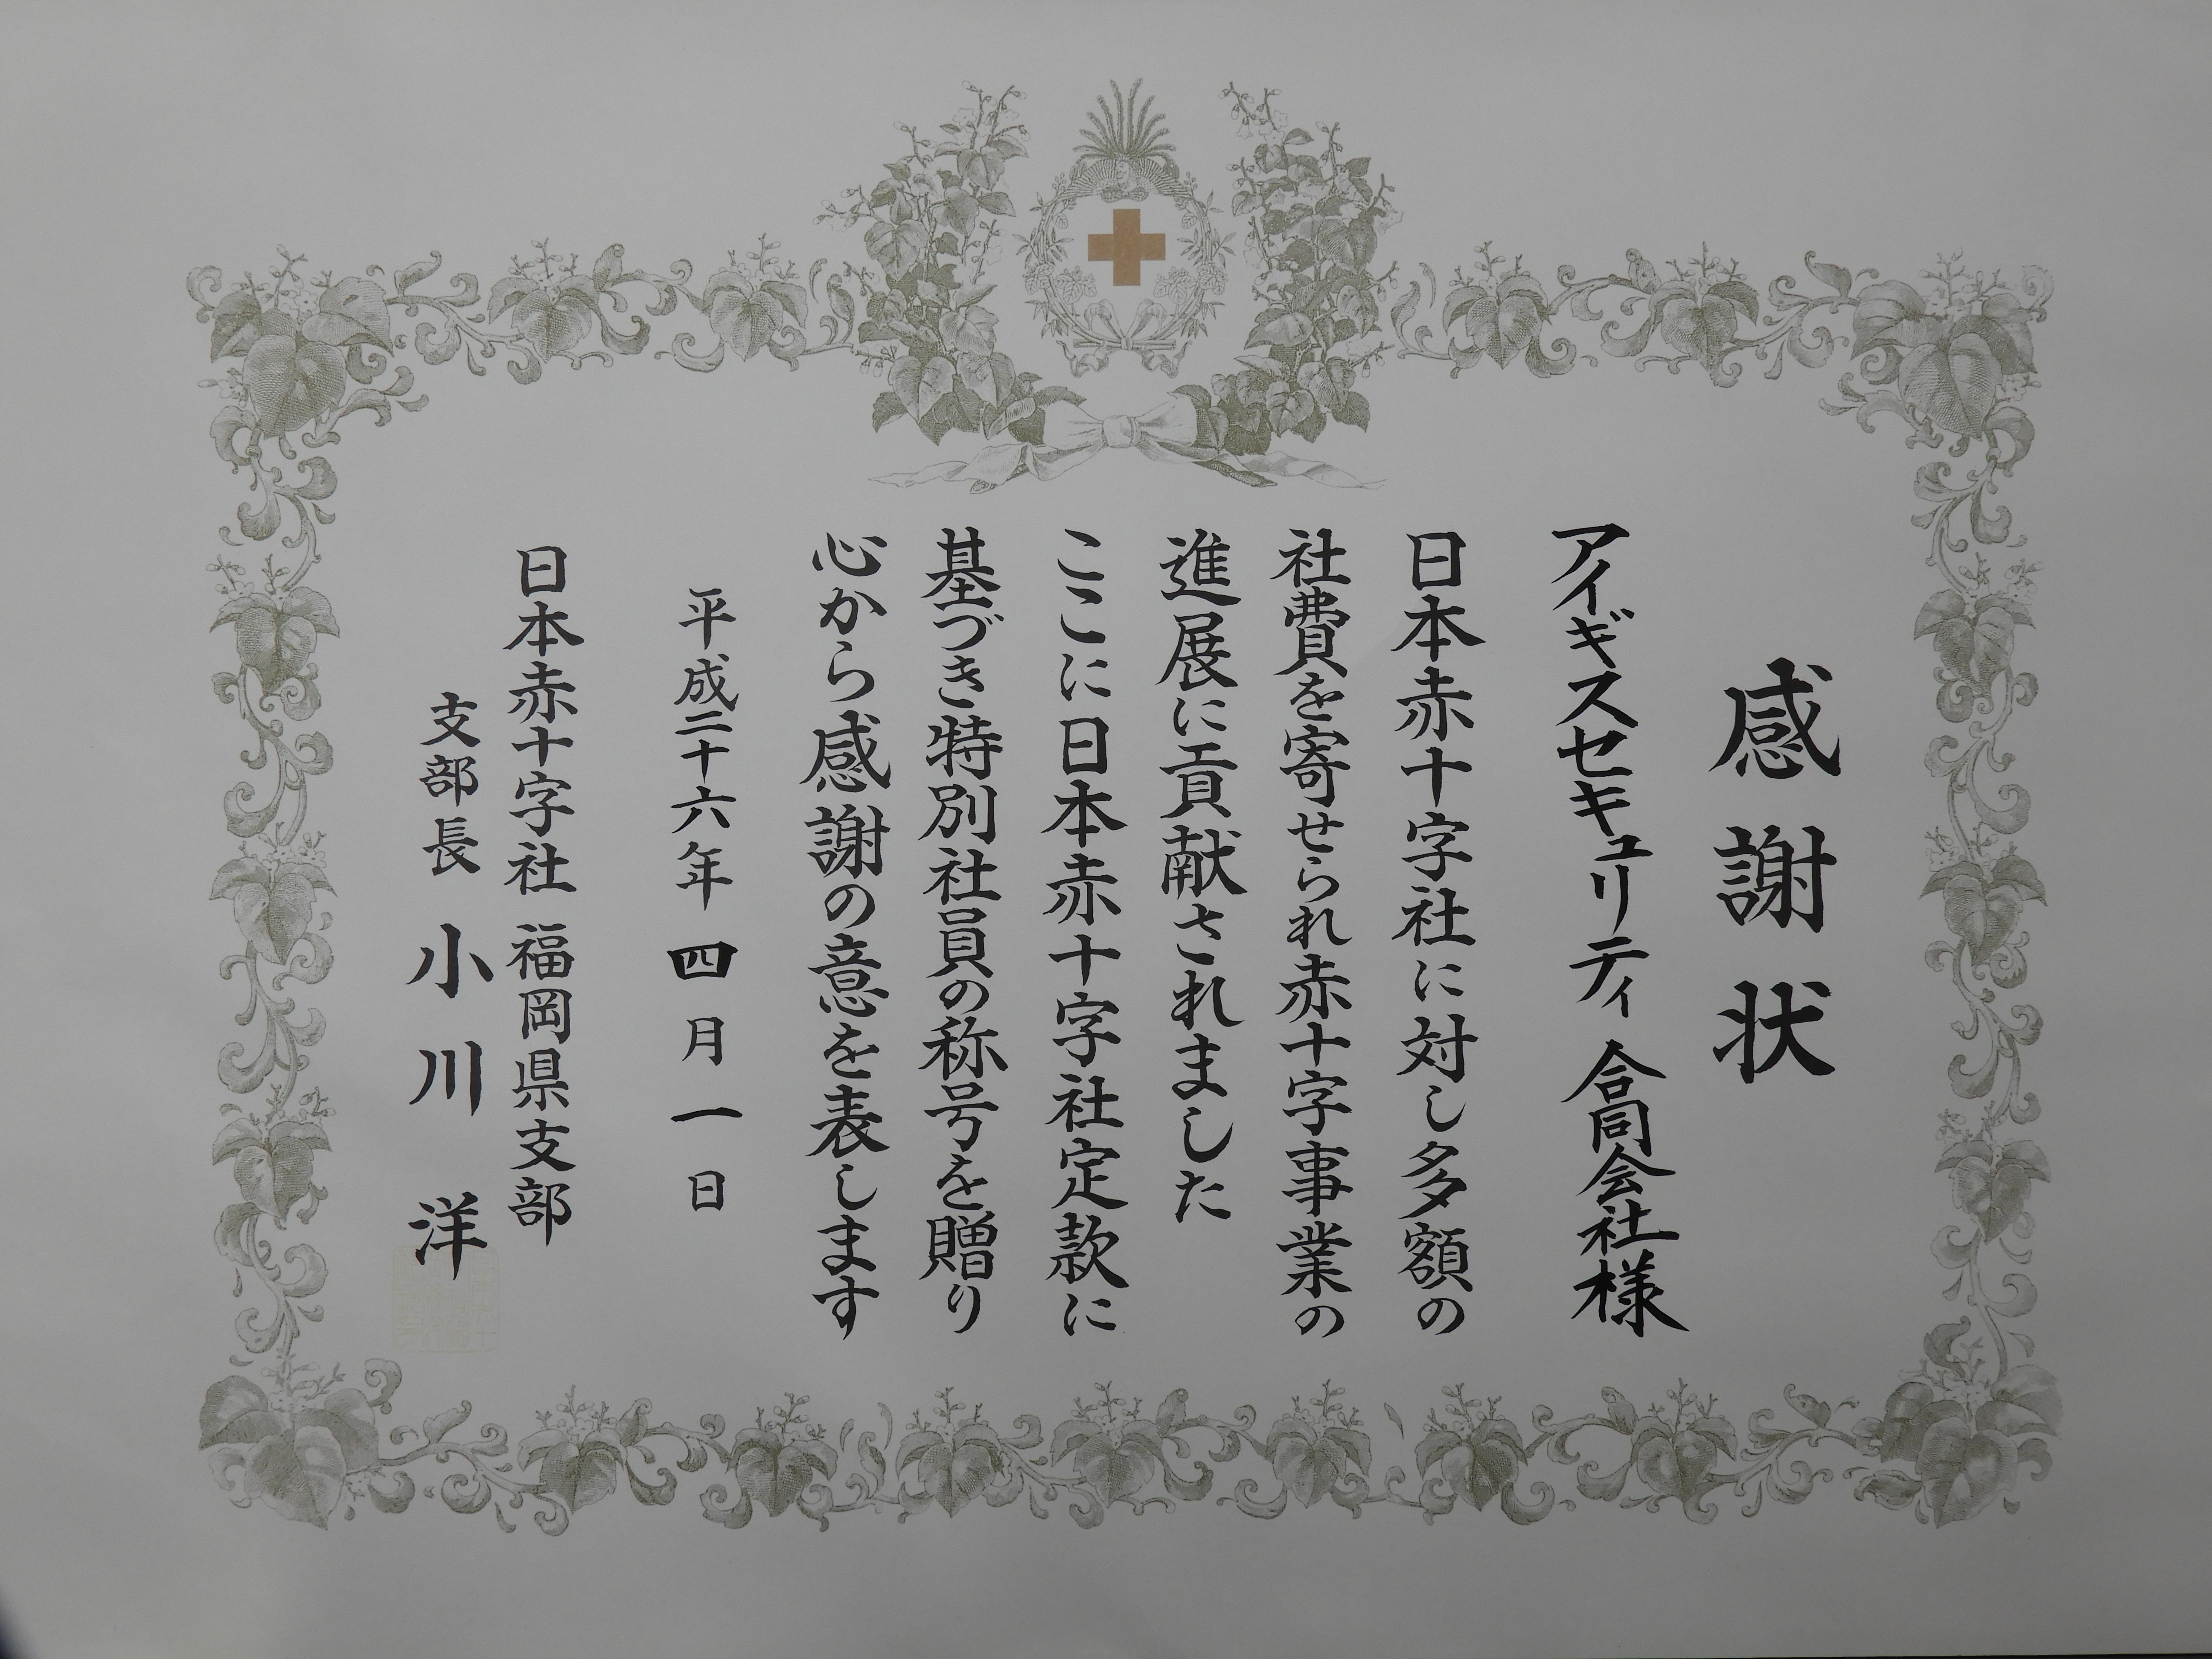 感謝状
アイギスセキュリティ 合同会社様
日本赤十字社に対し多額の
社費を寄せられ赤十字事業の
進展に貢献されました
ここに日本赤十字社定款に
基づき特別社員の称号を贈り
心から感謝の意を表します
平成二十六年四月一日
日本赤十字社 福岡県支部
支部長 小川 洋